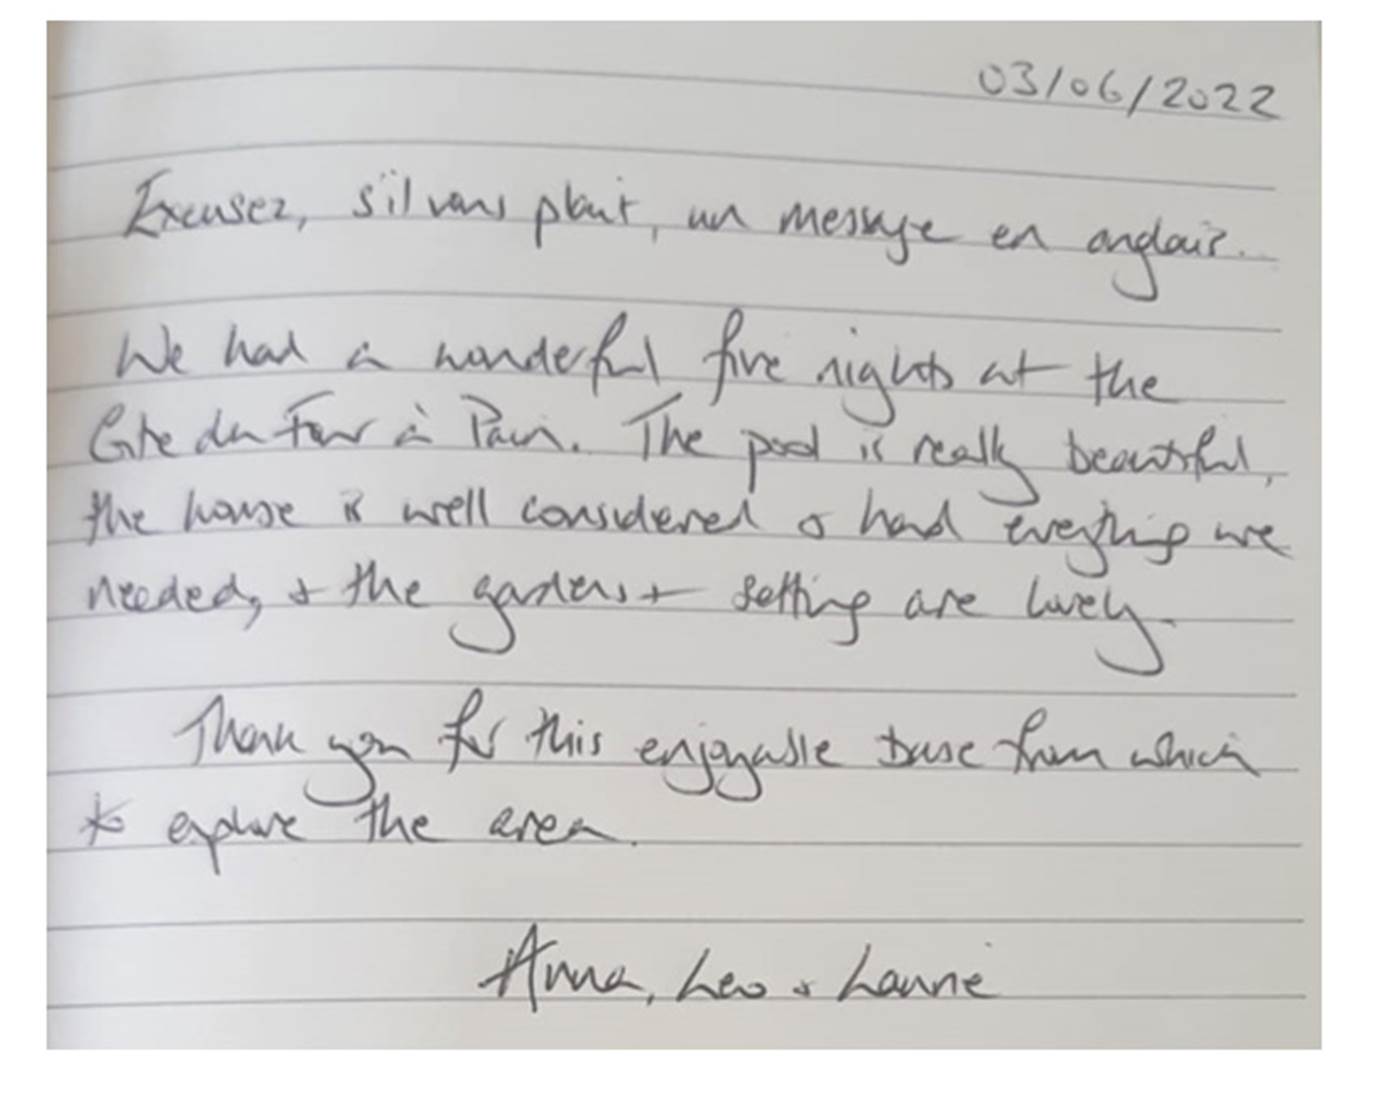 03/06/2022
Excusez, s'il vous plait, un message en anglais.
We had a wonderful five nights at the
Gite du Four à Pain. The pool is really beautiful,
the house is well considered & had everything we
needed, & the gardens + setting are lovely.
Thank you for this enjoyable base from which
to explore the area.
Anna, Leo & Laurie